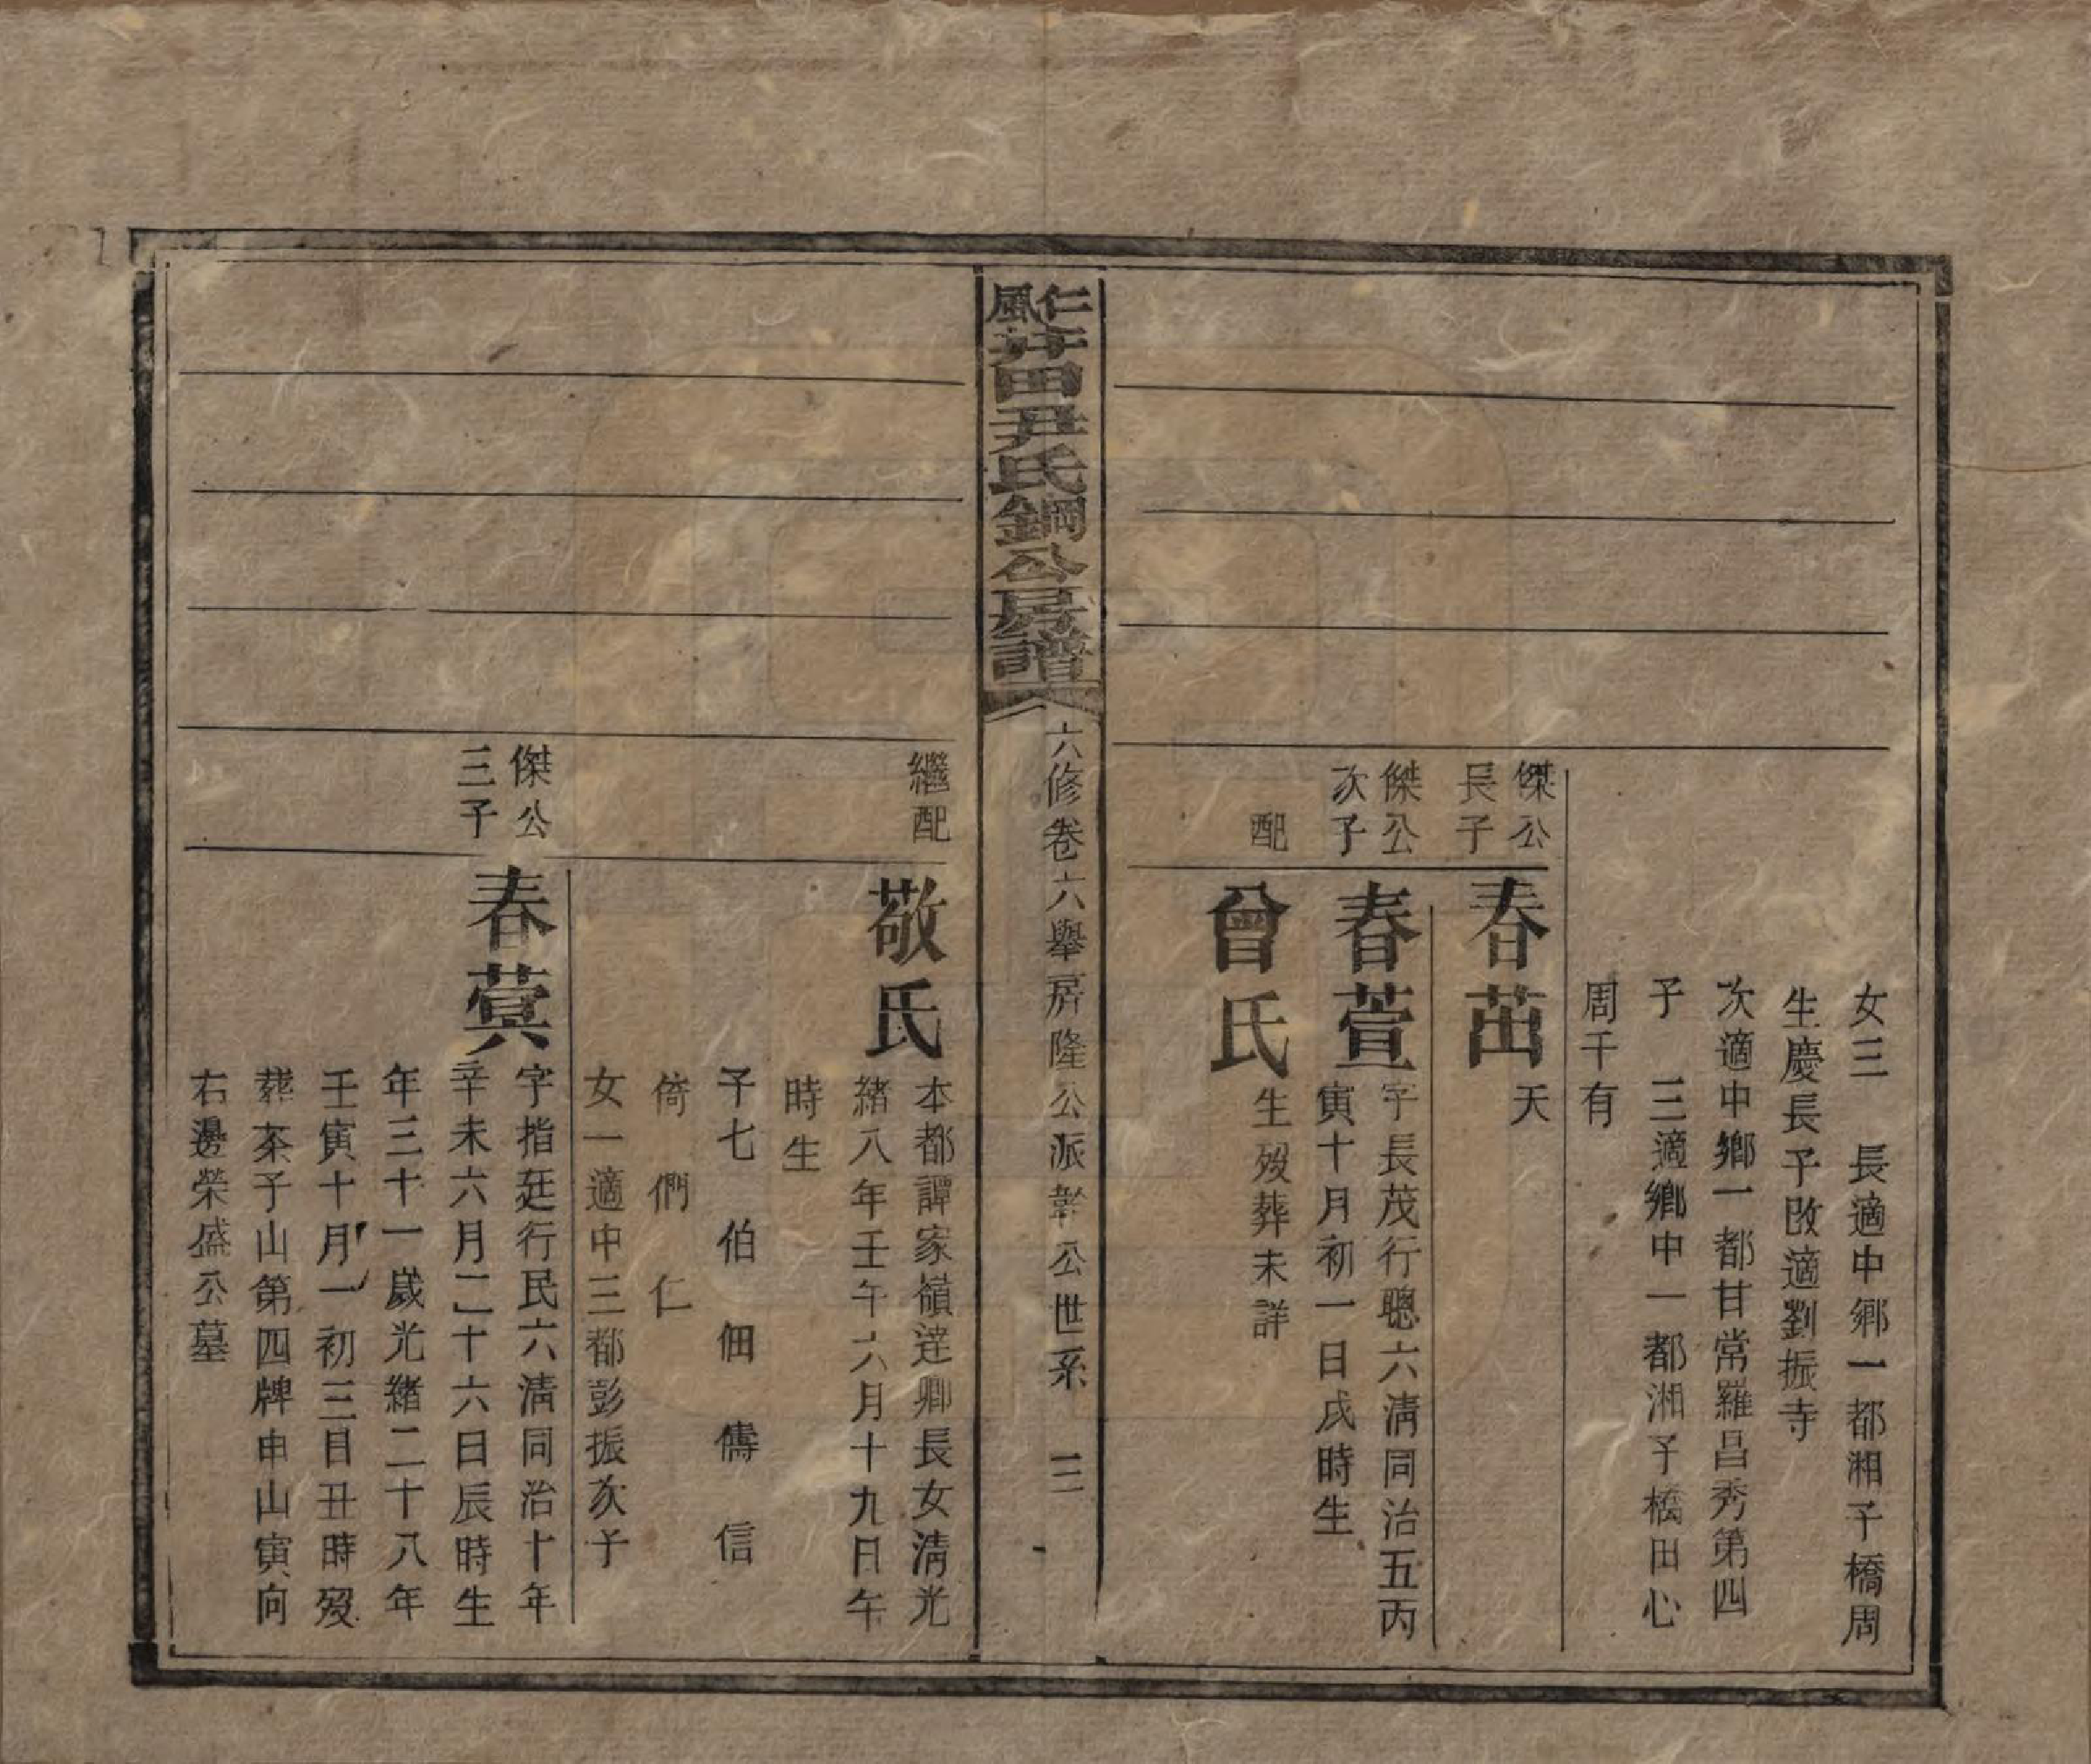 女三　長適中鄉一都湘子橋周
生慶長子改適劉振寺
次適中鄉一都甘常羅昌秀第四
子　三適鄉中一都湘子橋田心
周干有
傑公
長子
春茁
天
傑公
次子
春萱
字長茂行聰六清同治五丙
寅十月初一日戌時生
配
曾氏
生歿葬未詳
仁風井田尹氏鋼公房譜
六修卷六舉房隆公派公世系　三
繼配
敬氏
本都譚家嶺達卿長女清光
緒八年壬午六月十九日午
時生
子七　伯　佃　儔　信
倚　們　仁
女一適中三都彭振次子
傑公
三子
春蓂
字指廷行民六清同治十年
辛未六月二十六日辰時生
年三十一歲光緒二十八年
壬寅十月一初三日丑時歿
葬茶子山第四牌申山寅向
右邊榮盛公墓